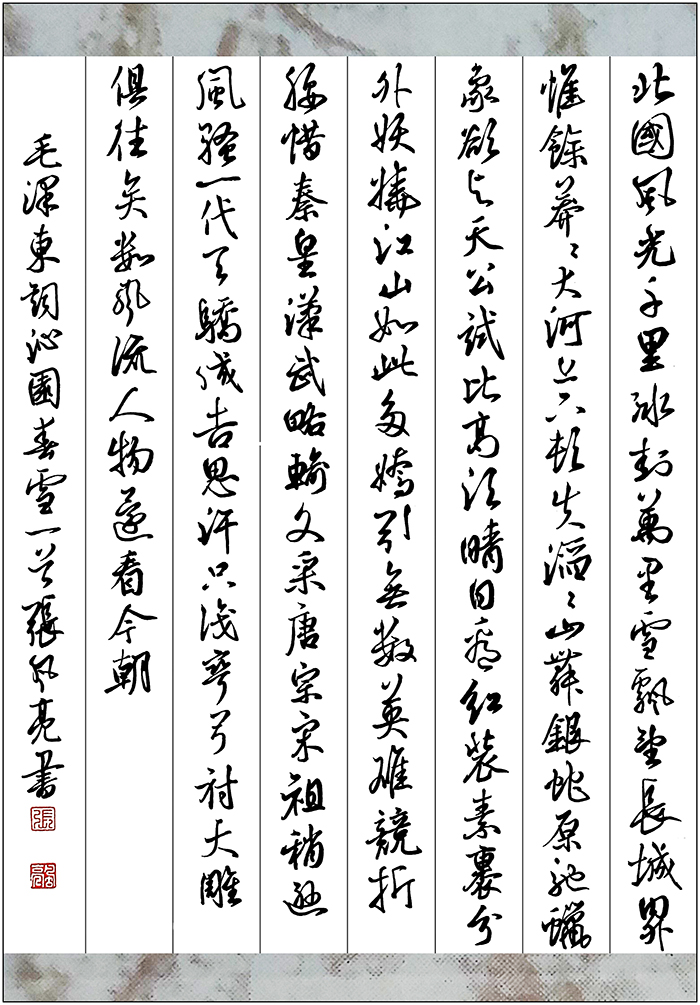 北國風光千里冰封萬里雪飄望長城界
惟餘莽〻大河上下頓失滔〻山舞銀蛇原馳蠟
象欲与天公試比高須晴日看紅裝素裹分
外妖嬈江山如此多嬌引無數英雄競折
腰惜秦皇漢武略輸文采唐宗宋祖稍遜
風騷一代天驕成吉思汗只識彎弓射大雕
俱往矣數風流人物還看今朝
毛澤東詞沁園春雪一首張風亮書
張